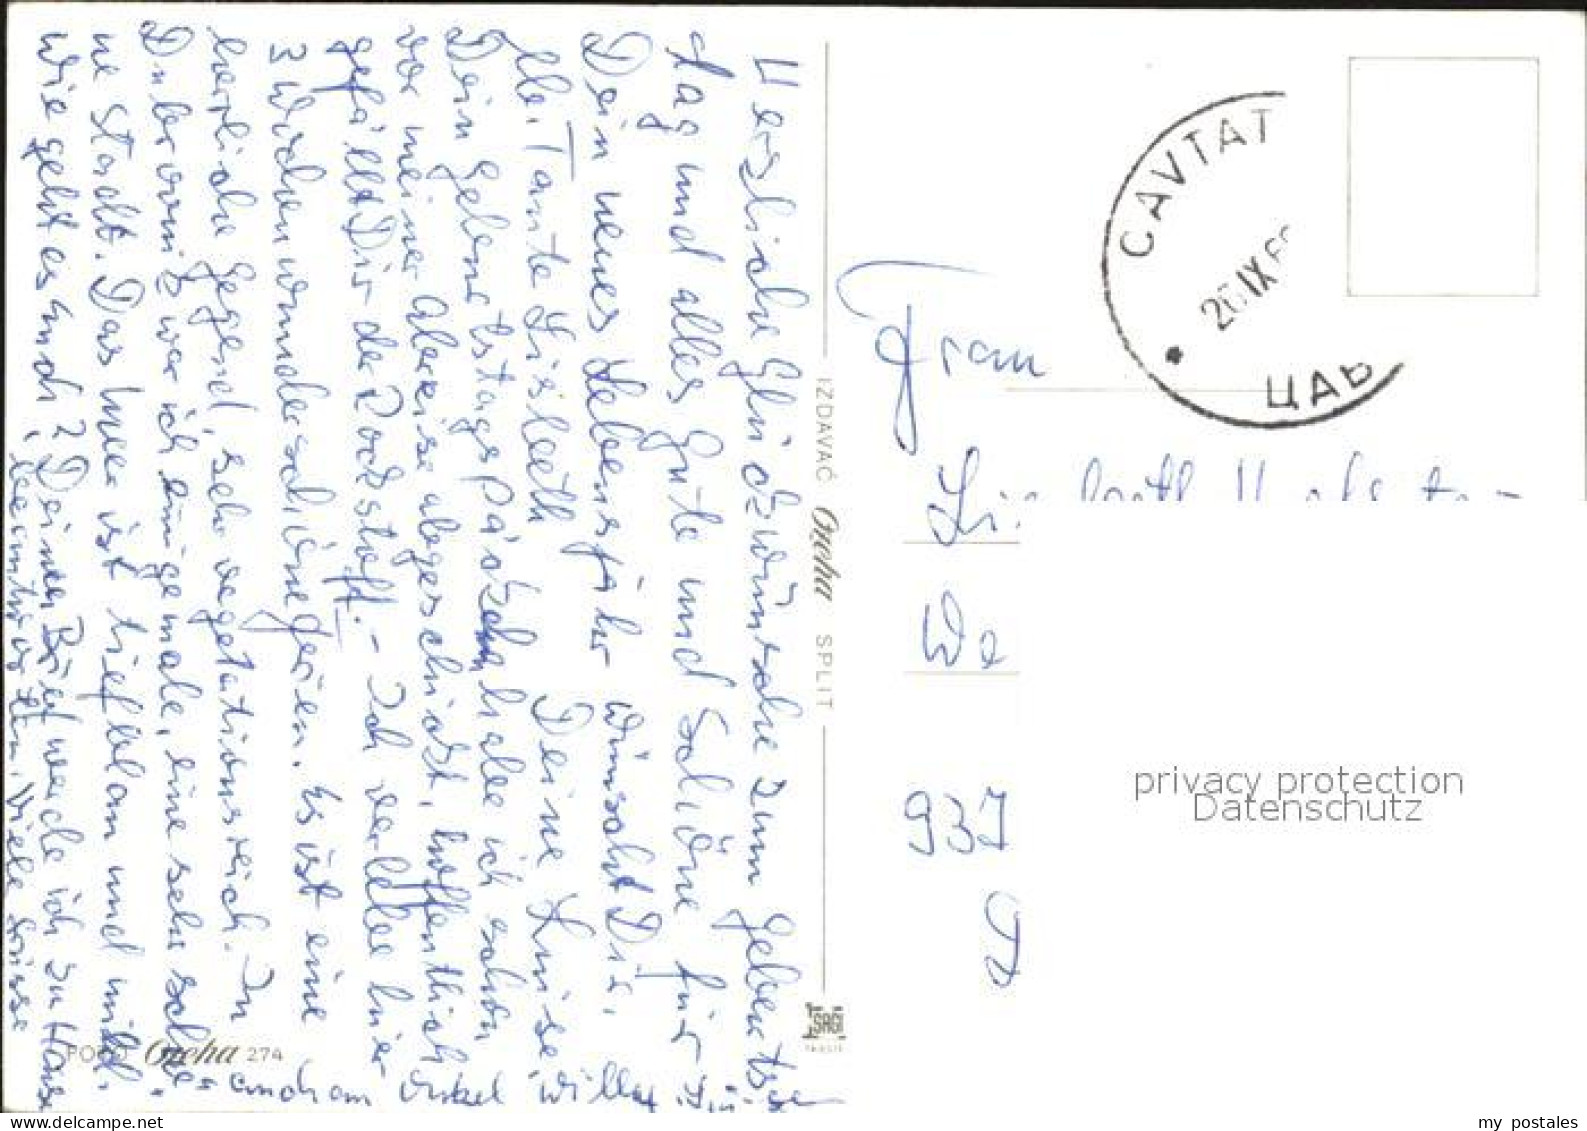 Herzliche Glückwünsche zum Geburts=
tag und alles Gute und Schöne für
Dein neues Lebensjahr wünscht Dir,
lbe. Tante Lisbeth Deine Luise,
Dein Geburtstagspäckchen habe ich schon
vor meiner Abreise abgeschickt, hoffentlich
gefällt Dir der Rockstoff. - Ich verlebe hier
3 Wochen wunderschöne Ferien. Es ist eine
herrliche Gegend, sehr vegetationsreich. In
Dubrovnik war ich einige male, eine sehr schö=
ne Stadt. Das Meer ist tiefblau und mild.
Wie geht es Euch? Deinen Brief werde ich zu Hause
beantworten. Viele Grüsse
auch an Onkel Willi
IZDAVAČ Ozeha SPLIT
FOTO Ozeha 274
CAVTAT
ЦАВ
Frau
We
937
privacy protection
Datenschutz
my postales